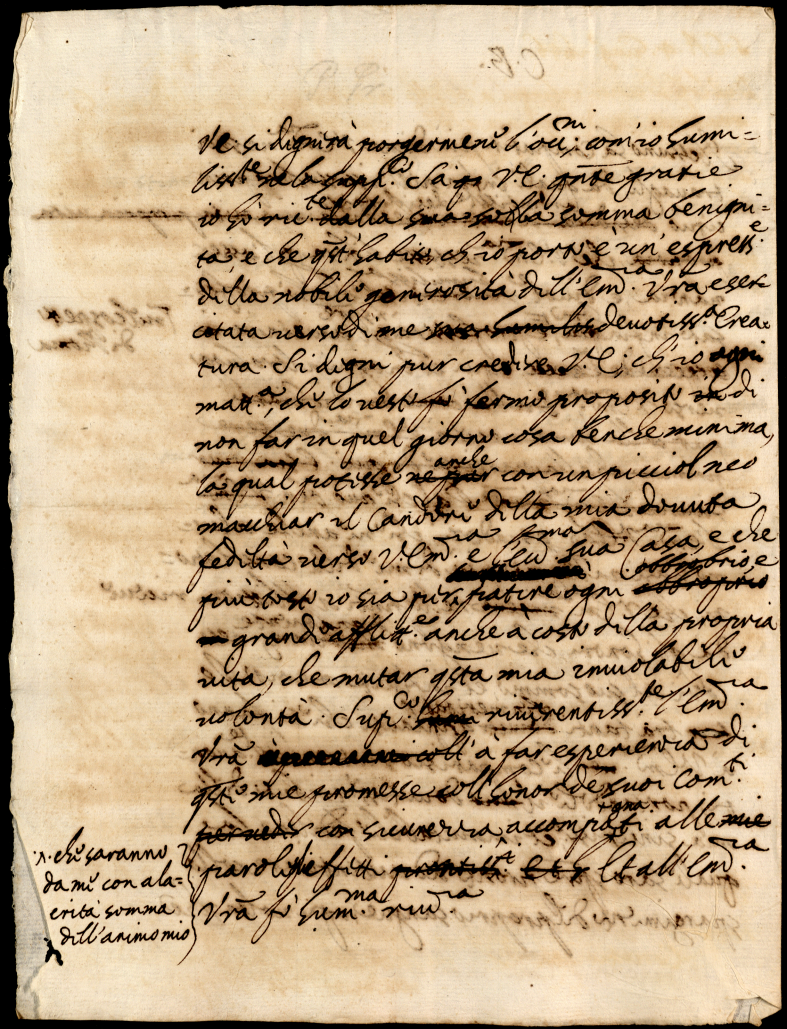 C. B.
Ve si dignirà porgermene l'occ.ni, com'io humi=
liss.te nela supp.co Sa V.E. qnte gratie
io hò ric.te dalla somma benigni=
tà, e che qst'habito, ch'io porto, è un'espress.e
della nobile generosità dell'Em.ia Vrã eser=
citata verso di me devotiss.a Crea=
tura. Si degni pur credere V.E., ch'io ogni
matt.a, che lo vesto fò fermo proposito di
non far in quel giorno cosa benche minima,
la qual potesse anche con un picciol neo
macchiar il candore della mia dovuta
fedeltà verso V.Em.ia e l'Ecc.ma sua Casa, e che
più tosto io sia per patire ogni obbrobrio, e
grande afflitt.e anche à costo della propria
vita, che mutar qsta mia inviolabile
volontà. Supp.co riverentiss.te l'Em.ia
Vrã à far esperienza di
qste mie promesse coll'honor de suoi Com.ti
con sicurezza accompagnati alle
parole effetti Et all'Em.ia
Vrã fò hum.ma riv.ia
che saranno
da me con ala=
crità somma
dell'animo mio